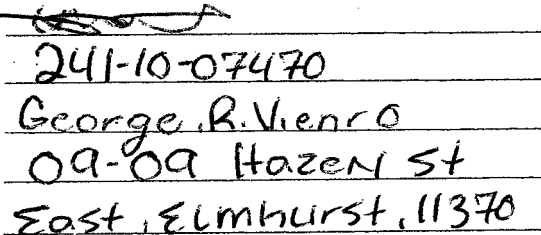 241-10-07470
George.R.Vienro
09-09 Hazen St
East, Elmhurst, 11370